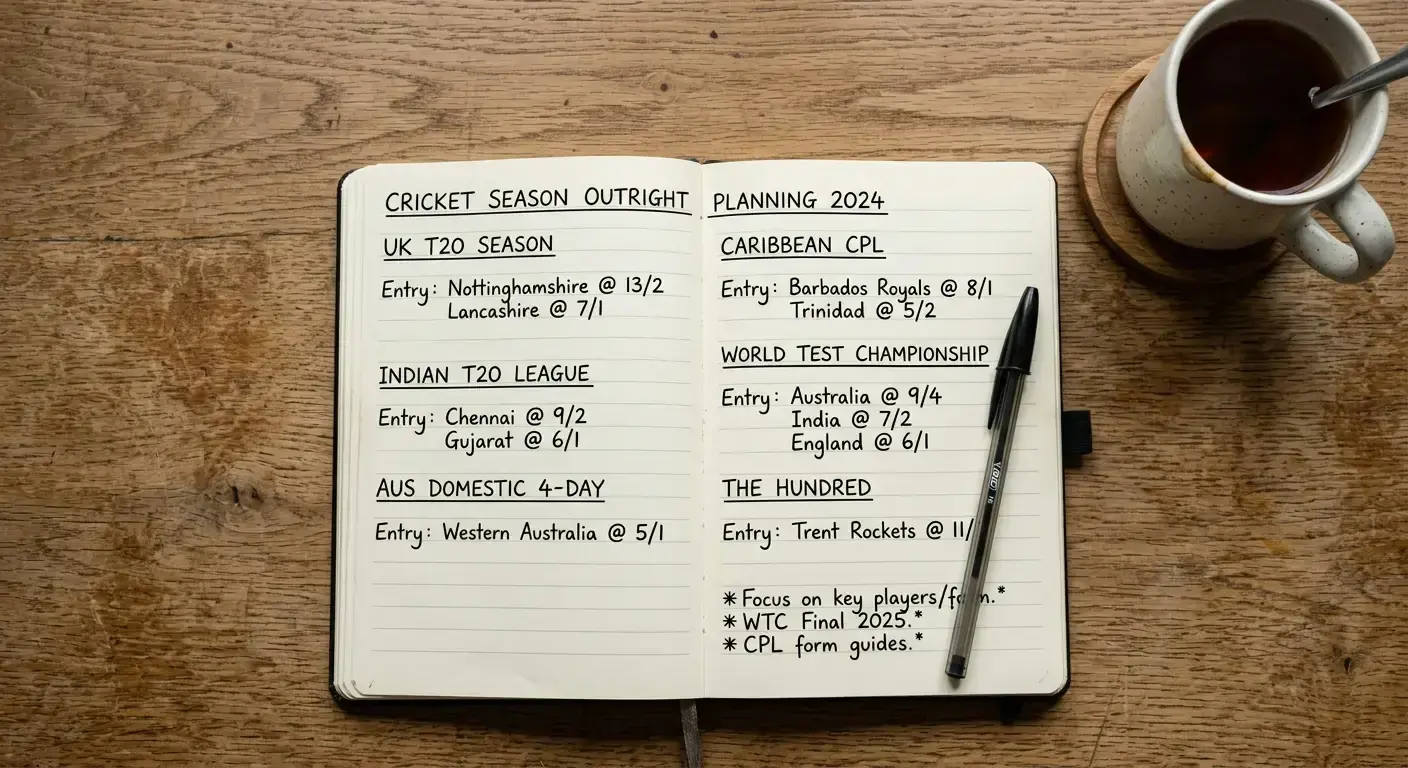 CRICKET SEASON OUTRIGHT PLANNING 2024
UK T20 SEASON
Entry: Nottinghamshire @ 13/2
Lancashire @ 7/1
INDIAN T20 LEAGUE
Entry: Chennai @ 9/2
Gujarat @ 6/1
AUS DOMESTIC 4-DAY
Entry: Western Australia @ 5/1
CARIBBEAN CPL
Entry: Barbados Royals @ 8/1
Trinidad @ 5/2
WORLD TEST CHAMPIONSHIP
Entry: Australia @ 9/4
India @ 7/2
England @ 6/1
THE HUNDRED
Entry: Trent Rockets @ 11/
* Focus on key players/form.*
* WTC Final 2025.*
* CPL form guides.*